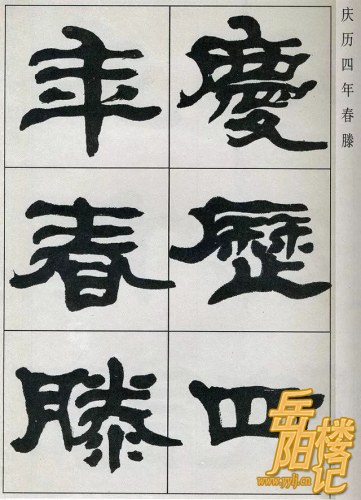 慶歷四
年春滕
庆历四年春滕
岳阳楼记
www.yylj.cn